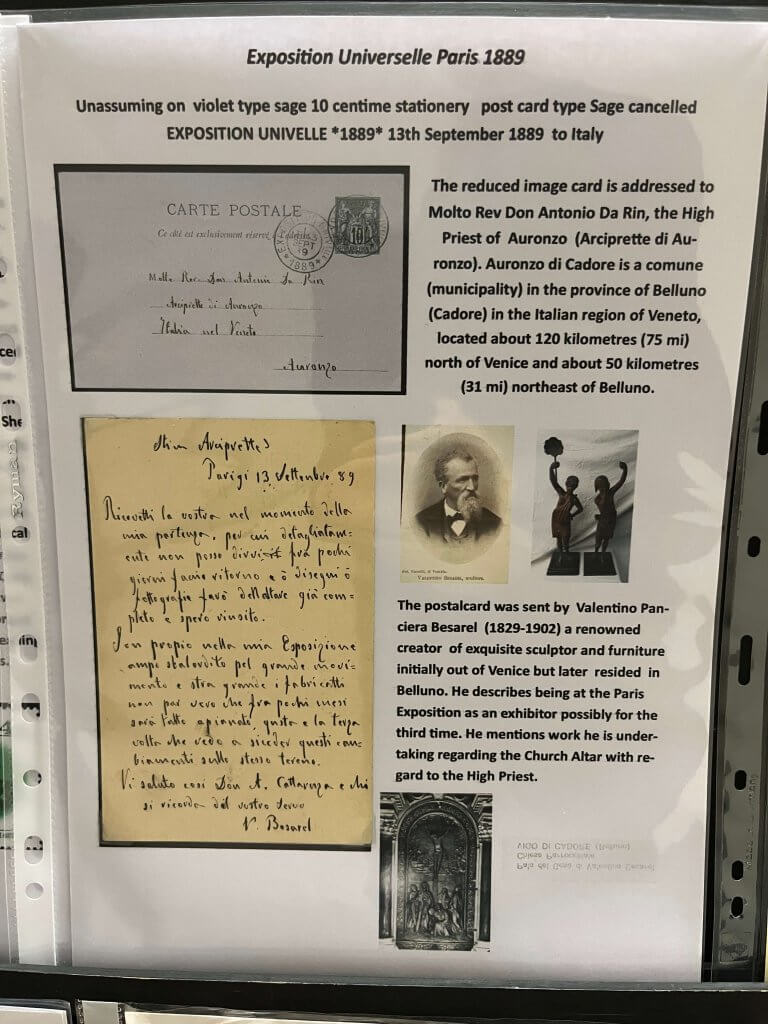 Exposition Universelle Paris 1889
Unassuming on violet type sage 10 centime stationery post card type Sage cancelled
EXPOSITION UNIVELLE *1889* 13th September 1889 to Italy
CARTE POSTALE
Ce côté est exclusivement réservé
10
SEPT
*1889*
Molto Rev. Don Antonio Da Rin
Arciprette di Auronzo
Italia nel Veneto
Auronzo
The reduced image card is addressed to
Molto Rev Don Antonio Da Rin, the High
Priest of Auronzo (Arciprette di Au-
ronzo). Auronzo di Cadore is a comune
(municipality) in the province of Belluno
(Cadore) in the Italian region of Veneto,
located about 120 kilometres (75 mi)
north of Venice and about 50 kilometres
(31 mi) northeast of Belluno.
Arciprette
Parigi 13 Settembre 89
Ricevetti la vostra nel momento della
mia partenza, per cui detagliatam-
ente non posso fra pochi
giorni faccio ritorno e o disegni o
fottografie farò dell altare già com-
pleto e spero riuscito.
Son proprio nella mia Esposizione
stalordito pel grande movi-
mento e stra grande i fabricatti
non par vero che fra pochi mesi
sarà tutto apianato, questa e la terza
volta che vedo a questi can-
biamenti sullo stesso tereno.
Vi saluto così Don A. Cattaruzza e chi
si ricorda del vostro servo
V. Besarel
VALENTINO BESAREL, scultore.
The postalcard was sent by Valentino Pan-
ciera Besarel (1829-1902) a renowned
creator of exquisite sculptor and furniture
initially out of Venice but later resided in
Belluno. He describes being at the Paris
Exposition as an exhibitor possibly for the
third time. He mentions work he is under-
taking regarding the Church Altar with re-
gard to the High Priest.
VIGO DI CADORE (Belluno)
Chiesa Parrocchiale
Pala del Gesù di Valentino Besarel
Ryman
She
cal